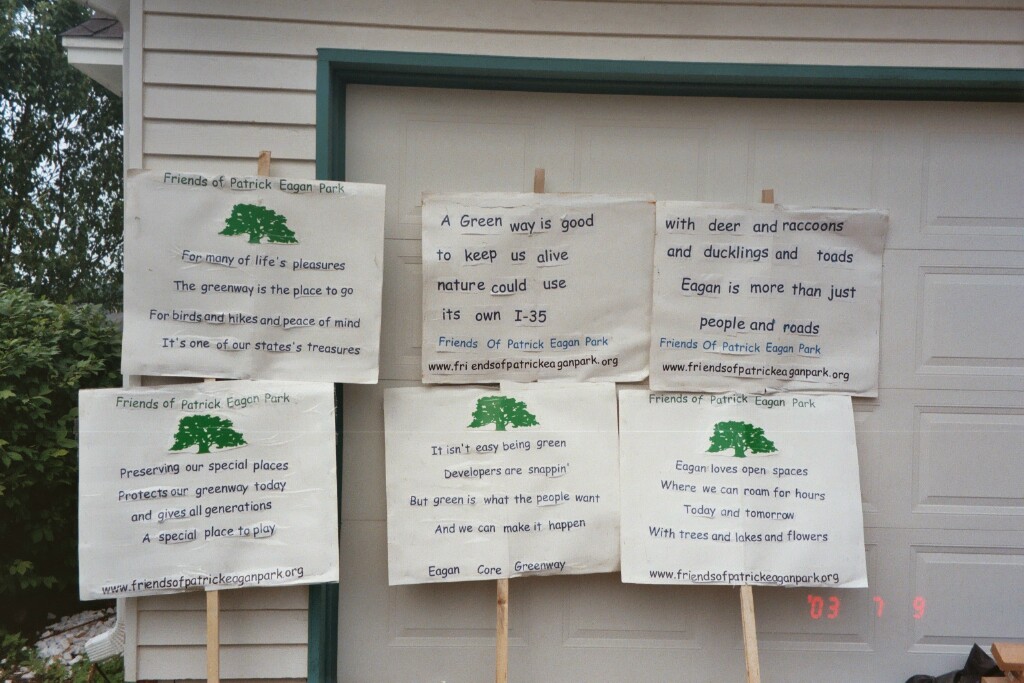 Friends of Patrick Eagan Park
For many of life's pleasures
The greenway is the place to go
For birds and hikes and peace of mind
It's one of our states's treasures
A Green way is good
to keep us alive
nature could use
its own I-35
Friends Of Patrick Eagan Park
www.friendsofpatrickeaganpark.org
with deer and raccoons
and ducklings and toads
Eagan is more than just
people and roads
Friends Of Patrick Eagan Park
www.friendsofpatrickeaganpark.org
Friends of Patrick Eagan Park
Preserving our special places
Protects our greenway today
and gives all generations
A special place to play
www.friendsofpatrickeaganpark.org
It isn't easy being green
Developers are snappin'
But green is what the people want
And we can make it happen
Eagan Core Greenway
Friends of Patrick Eagan Park
Eagan loves open spaces
Where we can roam for hours
Today and tomorrow
With trees and lakes and flowers
www.friendsofpatrickeaganpark.org
'03 7 9